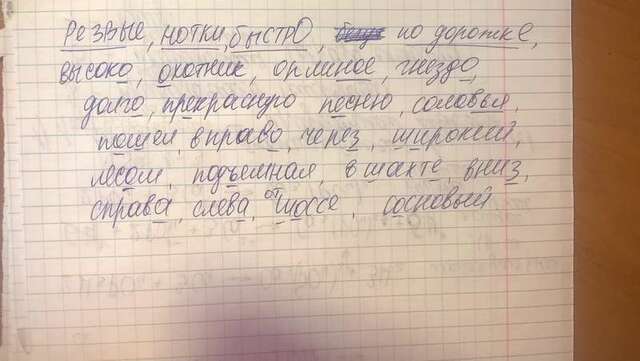 Резвые, нотки, быстро, по дорожке,
высоко, охотник, орлиное, гнездо,
долго, прекрасную песню, соловья,
пошел, вправо, через, широкий,
лесом, подъемная, в шахте, вниз,
справа, слева, от шоссе, сосновый